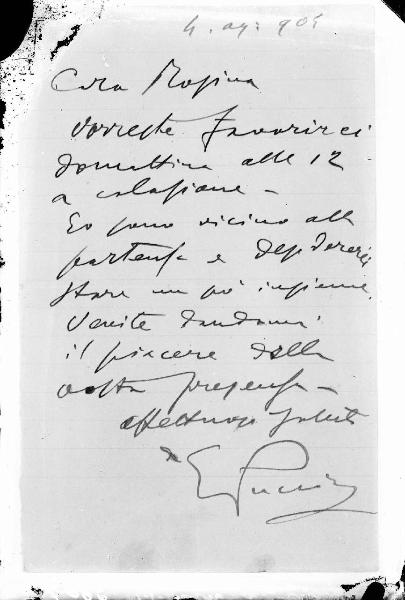 4. ag. 905
Cara Rosina
vorreste favorirci
domattina alle 12
a colazione –
Io sono vicino alla
partenza e desidererei
stare un po' insieme.
Venite dandomi
il piacere della
vostra presenza –
affettuosi saluti